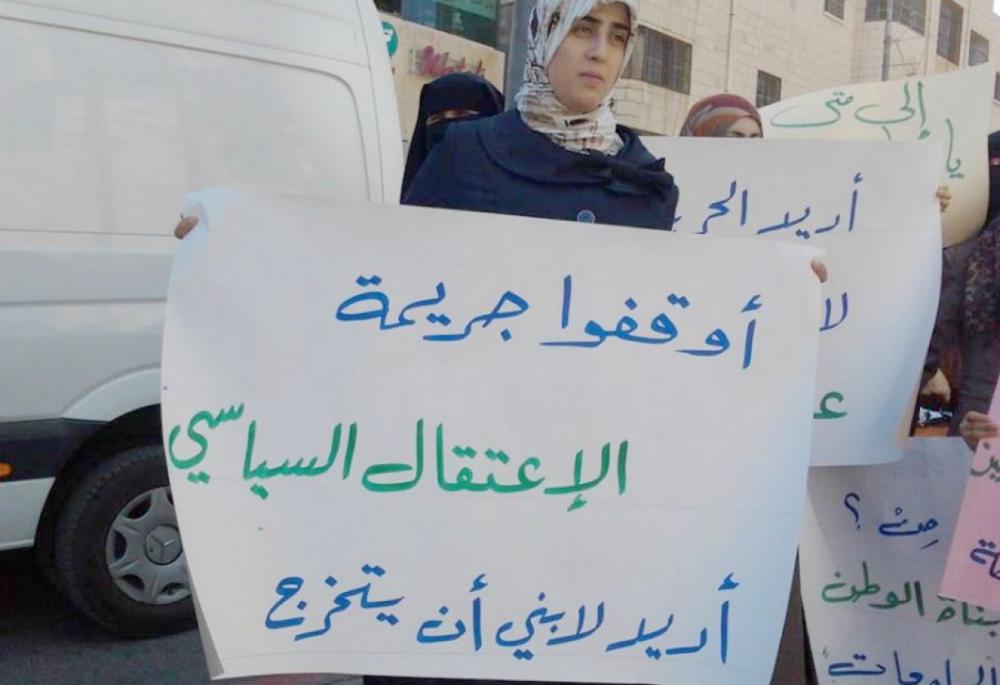 أوقفوا جريمة
الإعتقال السياسي
أريد لابني أن يتخرج
إلى متى
يا
أريد
لا
من ؟
بناة الوطن